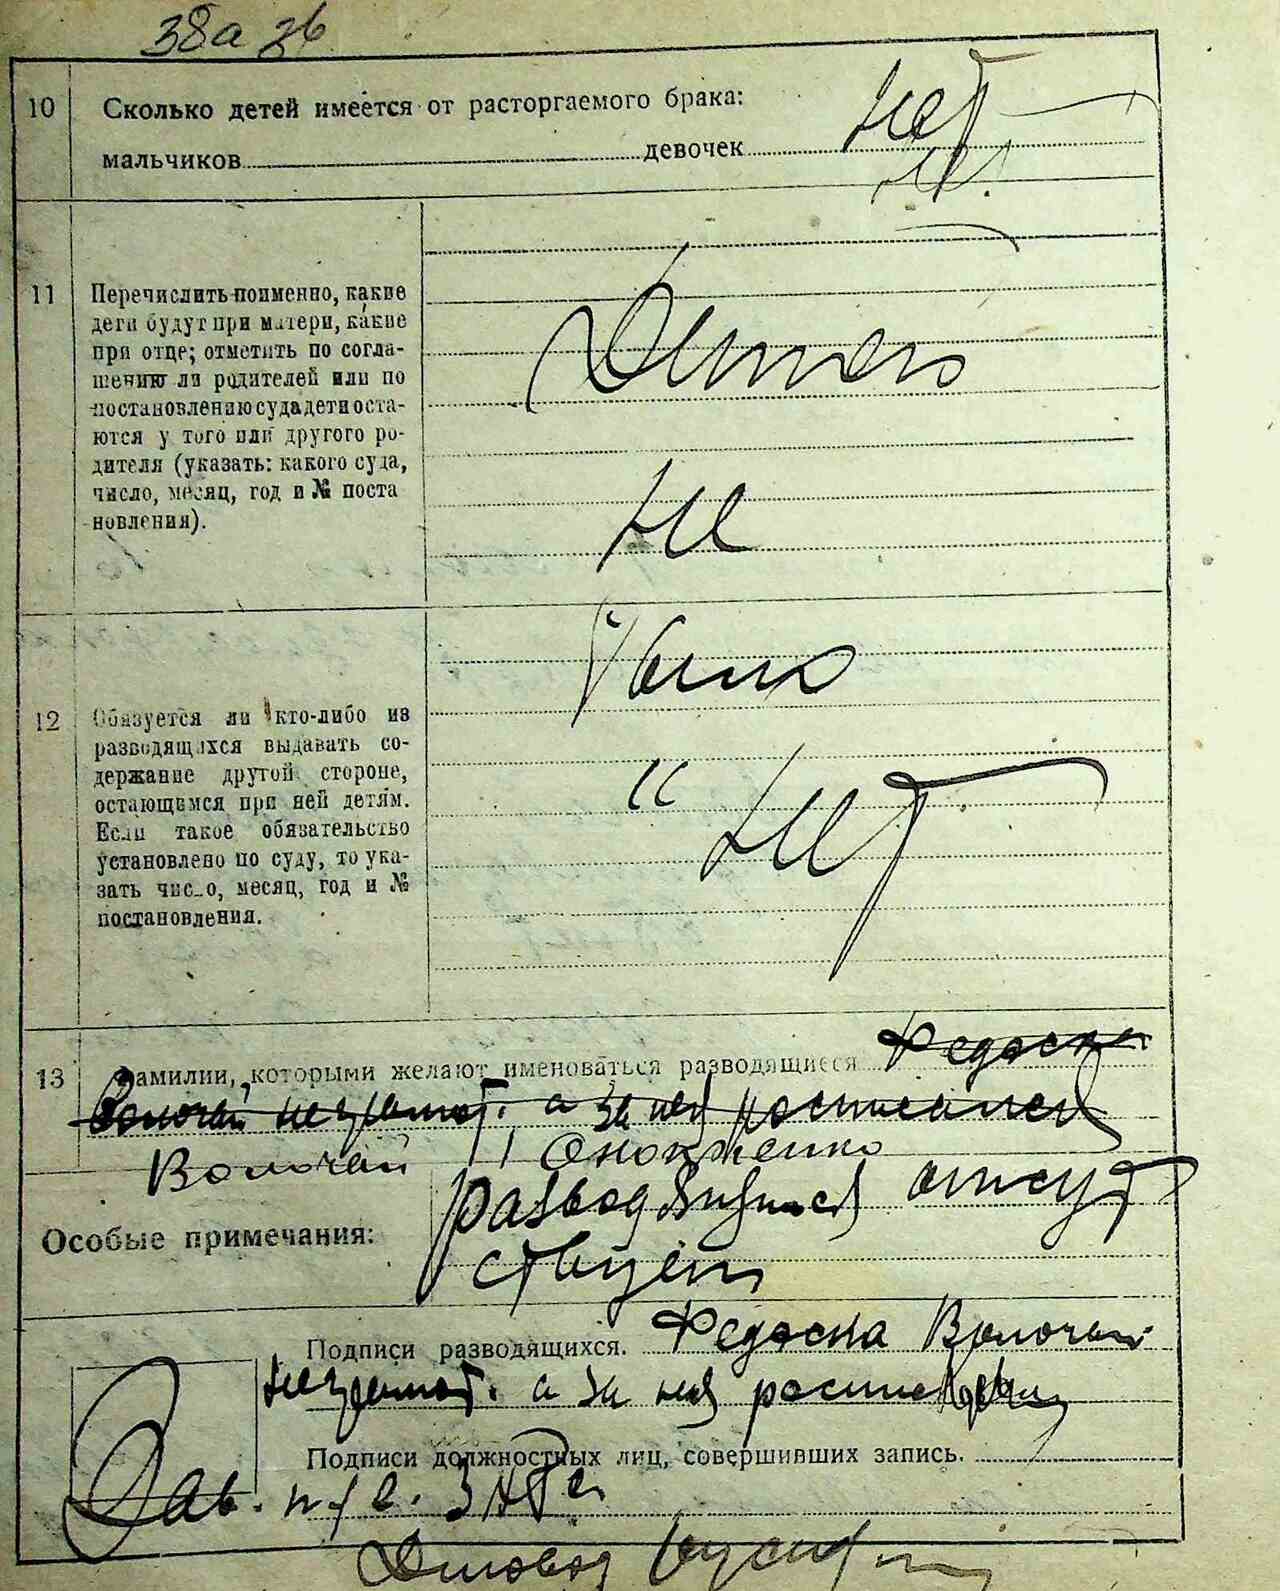 38а зв
10 Сколько детей имеется от расторгаемого брака:
мальчиков девочек нет
11 Перечислить поименно, какие
дети будут при матери, какие
при отце; отметить по согла-
шению ли родителей или по
постановлению суда дети оста-
ются у того или другого ро-
дителя (указать: какого суда,
число, месяц, год и № поста
новления).
Детей
не
было
12 Обязуется ли кто-либо из
разводящихся выдавать со-
держание другой стороне,
остающимся при ней детям.
Если такое обязательство
установлено по суду, то ука-
зать число, месяц, год и №
постановления.
и нет
13 Фамилии, которыми желают именоваться разводящиеся Федосна
Волочай неграмот. а за ней росписался
Волочай
Особые примечания:
развод отсут
ствует
Подписи разводящихся. Федосна Волочай
неграмот. а за ней
Подписи должностных лиц, совершивших запись.
Зав. ЗАГС
Деловод